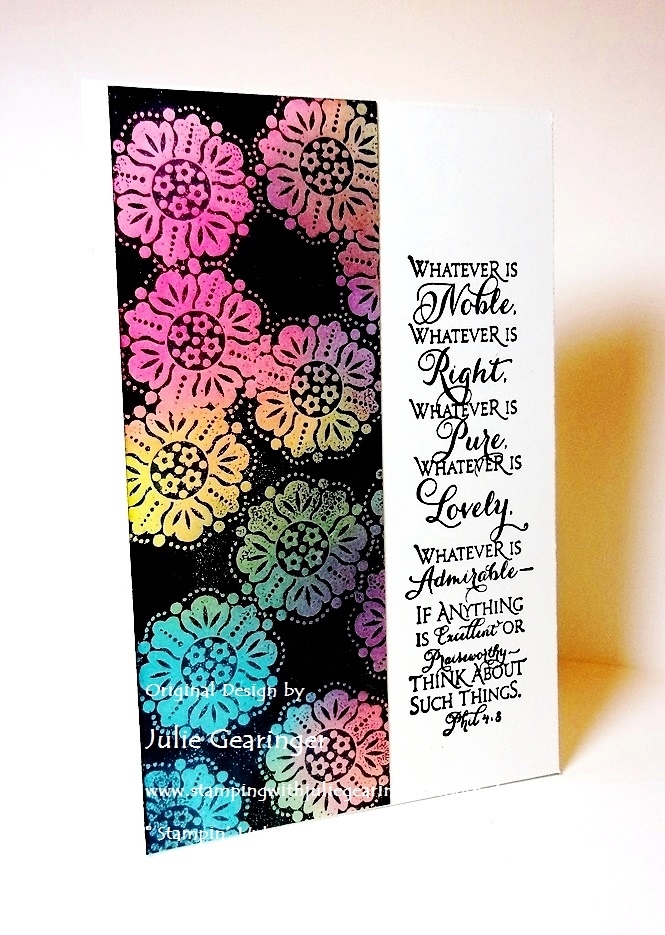 WHATEVER IS
Noble,
WHATEVER IS
Right,
WHATEVER IS
Pure,
WHATEVER IS
Lovely.
WHATEVER IS
Admirable—
IF ANYTHING
IS Excellent OR
Praiseworthy~
THINK ABOUT
SUCH THINGS.
Phil 4:8
Original Design by
Julie Gearinger
www.stampingwithjuliegearin
© Stampin'